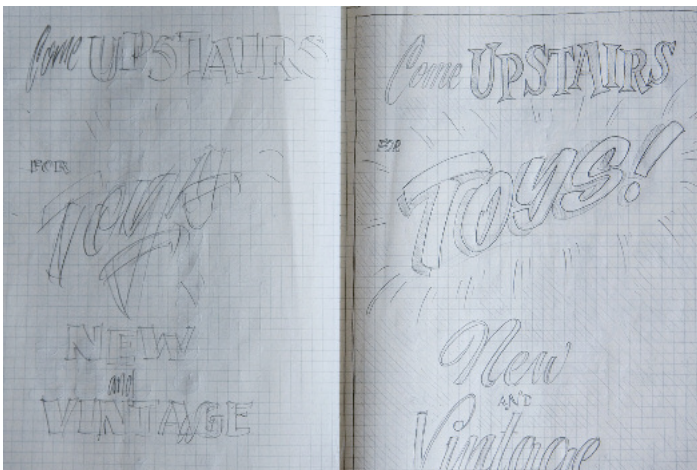 Come UPSTAIRS
FOR
TOYS
NEW
and
VINTAGE
Come UPSTAIRS
FOR
TOYS!
New
AND
Vintage